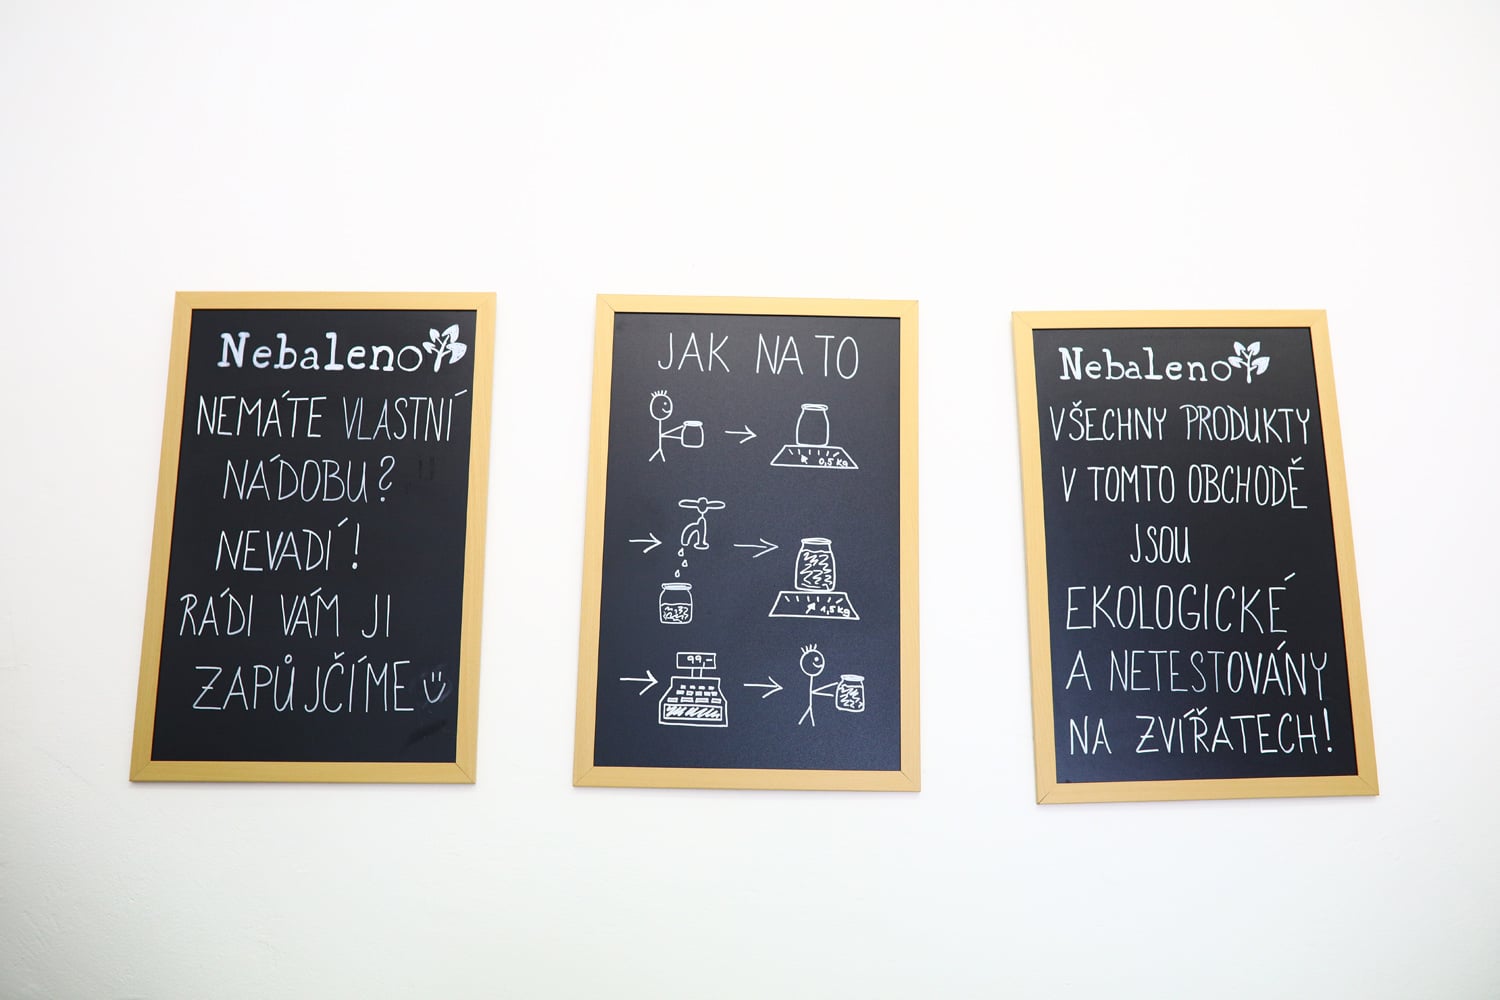 Nebaleno
NEMÁTE VLASTNÍ
NÁDOBU?
NEVADÍ!
RÁDI VÁM JI
ZAPŮJČÍME
JAK NA TO
0,5 kg
1,5 kg
99,-
Nebaleno
VŠECHNY PRODUKTY
V TOMTO OBCHODĚ
JSOU
EKOLOGICKÉ
A NETESTOVÁNY
NA ZVÍŘATECH!